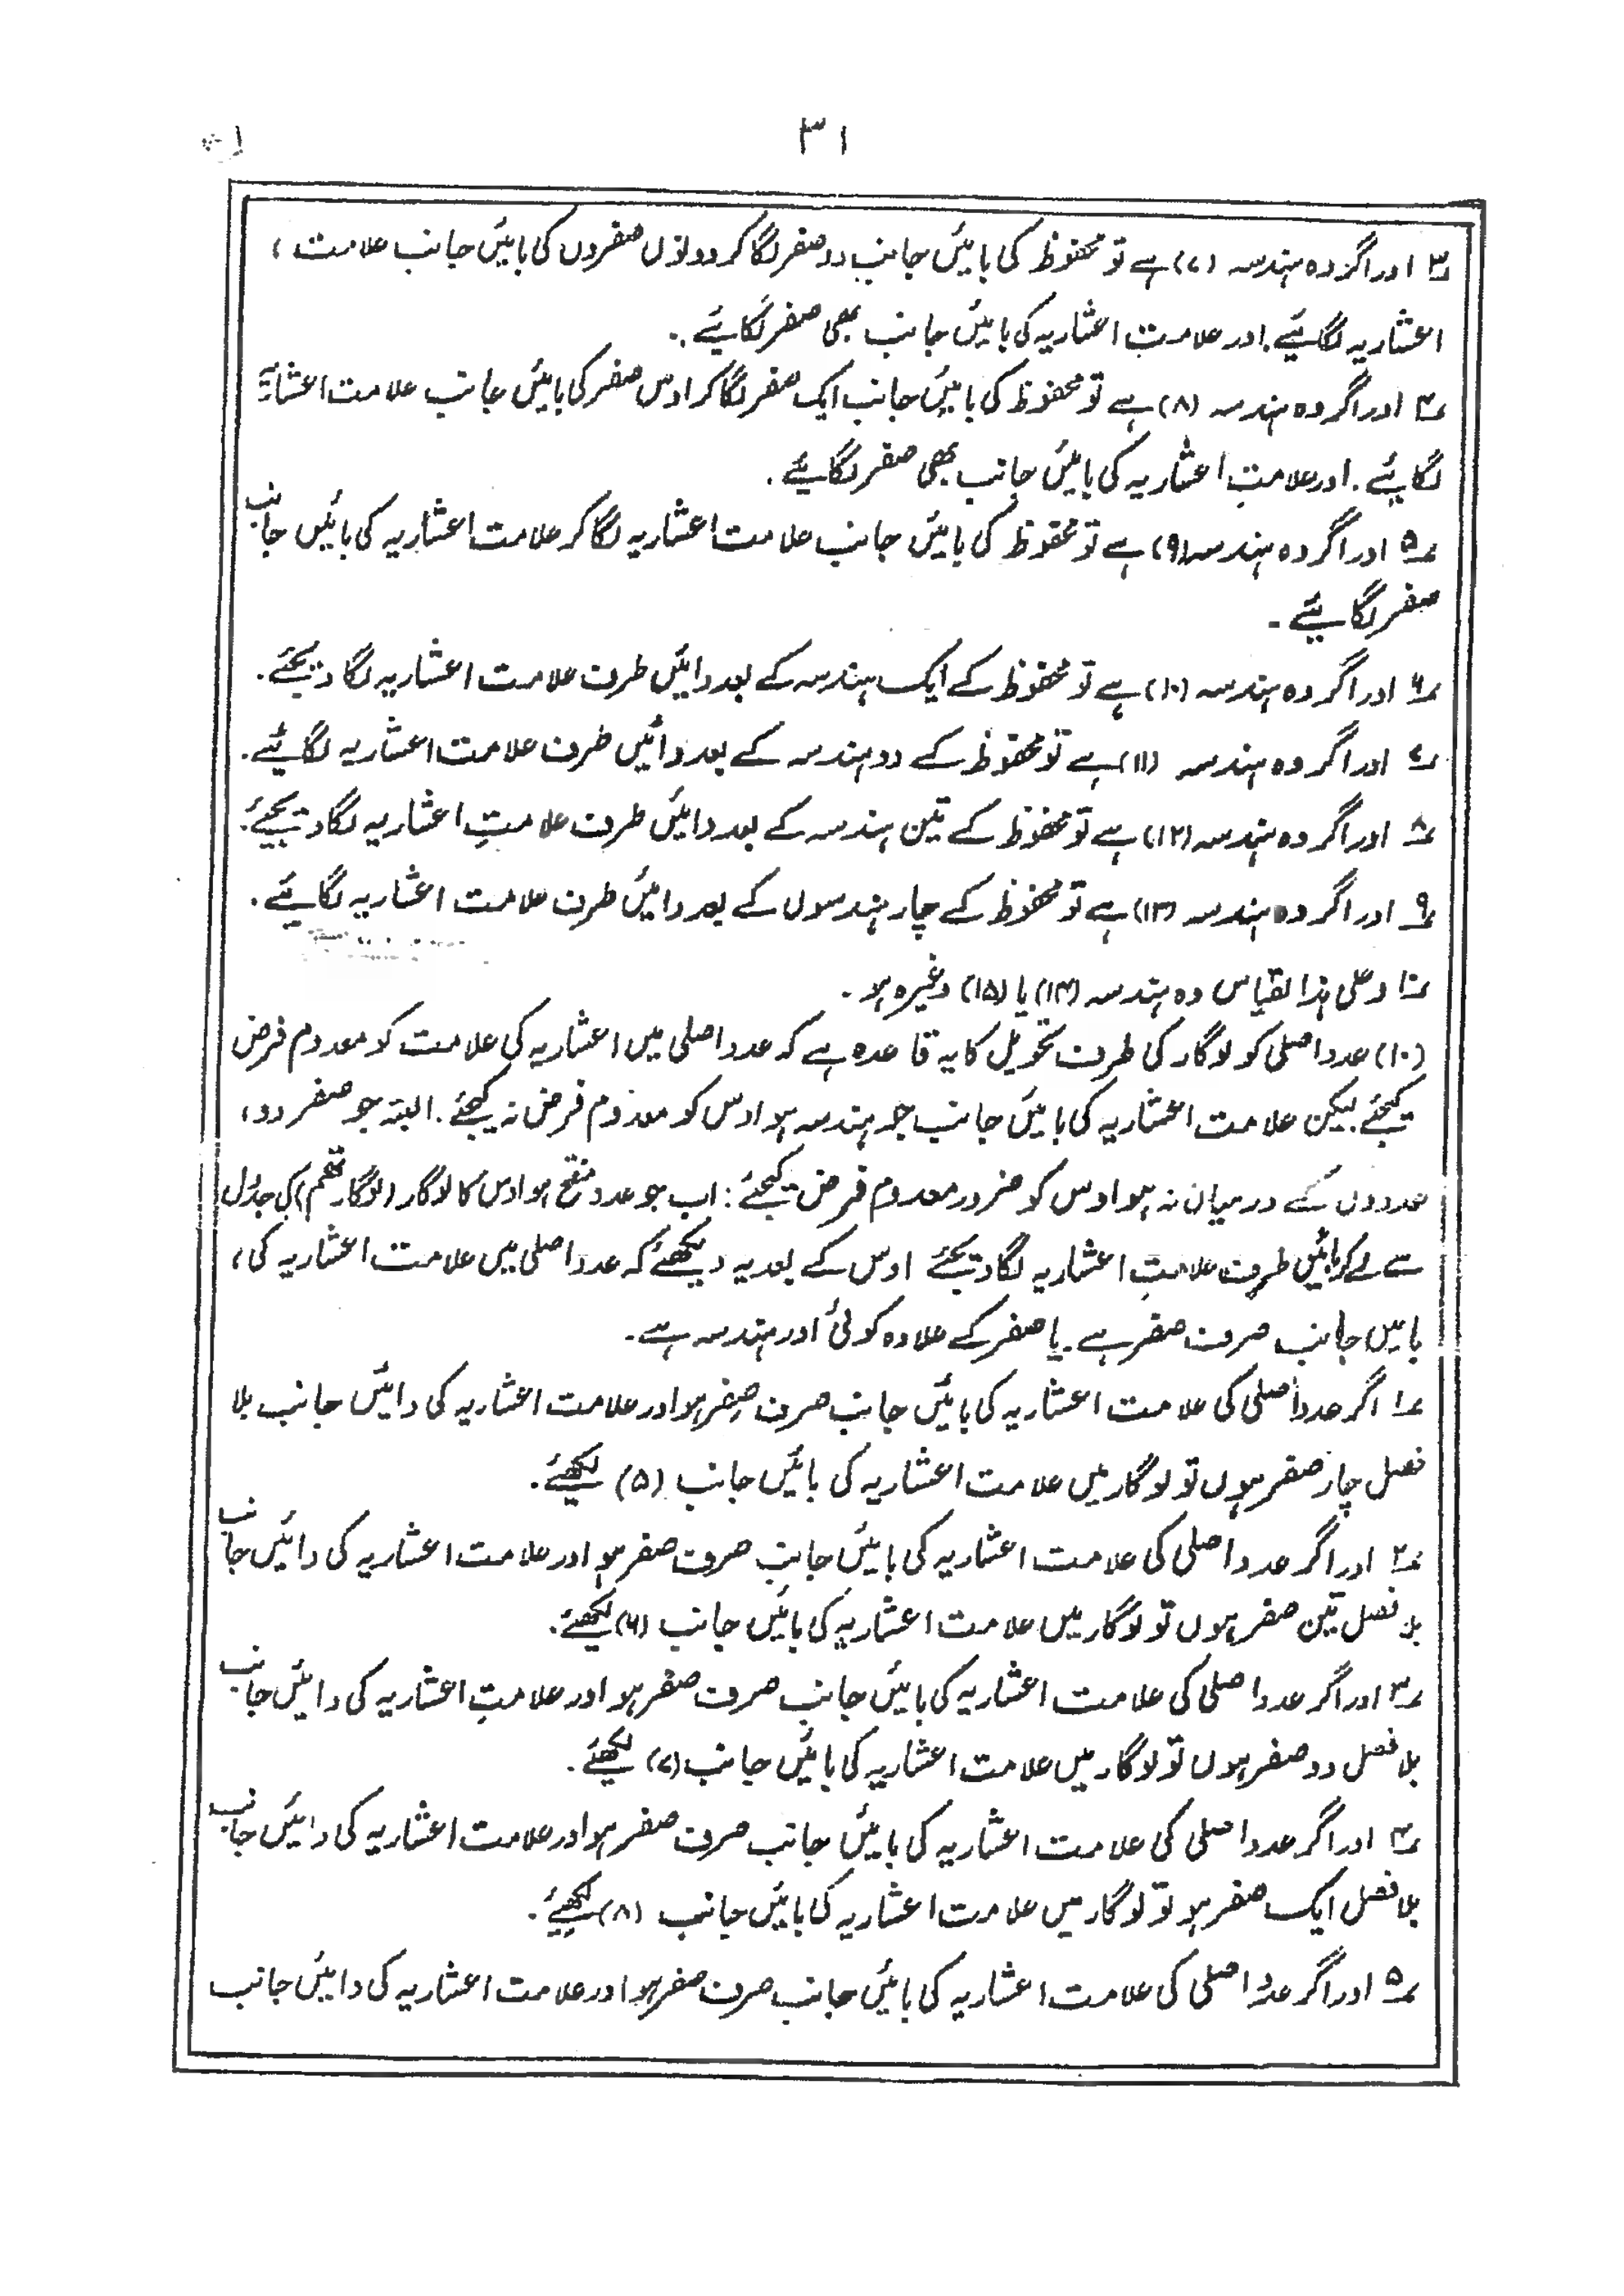 ۳۱
۳؂ اور اگر وہ ہندسہ (۷) ہے تو محفوظ کی بائیں جانب دو صفر لگا کر دونوں صفروں کی بائیں جانب علامت،
اعشاریہ لگائیے. اور علامت اعشاریہ کی بائیں جانب بھی صفر لگائیے.
۴؂ اور اگر وہ ہندسہ (۸) ہے تو محفوظ کی بائیں جانب ایک صفر لگا کر اوس صفر کی بائیں جانب علامت اعشاریہ
لگائیے. اور علامتِ اعشاریہ کی بائیں جانب بھی صفر لگائیے.
۵؂ اور اگر وہ ہندسہ (۹) ہے تو محفوظ کی بائیں جانب علامت اعشاریہ لگا کر علامت اعشاریہ کی بائیں جانب
صفر لگائیے -
۶؂ اور اگر وہ ہندسہ (۱۰) ہے تو محفوظ کے ایک ہندسہ کے بعد دائیں طرف علامت اعشاریہ لگا دیجئے.
۷؂ اور اگر وہ ہندسہ (۱۱) ہے تو محفوظ کے دو ہندسہ کے بعد دائیں طرف علامت اعشاریہ لگائیے.
۸؂ اور اگر وہ ہندسہ (۱۲) ہے تو محفوظ کے تین ہندسہ کے بعد دائیں طرف علامتِ اعشاریہ لگا دیجیئے.
۹؂ اور اگر وہ ہندسہ (۱۳) ہے تو محفوظ کے چار ہندسوں کے بعد دائیں طرف علامت اعشاریہ لگائیے.
۱۰؂ وعلی ہذا القیاس وہ ہندسہ (۱۴) یا (۱۵) وغیرہ ہو -
(۱۰) عدد اصلی کو لوگار کی طرف تحویل کا یہ قاعدہ ہے کہ عدد اصلی میں اعشاریہ کی علامت کو معدوم فرض
کیجئے. لیکن علامت اعشاریہ کی بائیں جانب جو ہندسہ ہو اوس کو معدوم فرض نہ کیجئے. البتہ جو صفر دو،
عددوں کے درمیان نہ ہو اوس کو ضرور معدوم فرض کیجئے: اب جو عدد منقح ہو اوس کا لوگار (لوگارتھم) کی جدول
سے لے کر بائیں طرف علامتِ اعشاریہ لگا دیجئے اوس کے بعد یہ دیکھئے کہ عدد اصلی میں علامت اعشاریہ کی،
بائیں جانب صرف صفر ہے. یا صفر کے علاوہ کوئی اور ہندسہ ہے.
۱؂ اگر عدد اصلی کی علامت اعشاریہ کی بائیں جانب صرف صفر ہو اور علامت اعشاریہ کی دائیں جانب بلا
فصل چار صفر ہوں تو لوگار میں علامت اعشاریہ کی بائیں جانب (۵) لکھیئے.
۲؂ اور اگر عدد اصلی کی علامت اعشاریہ کی بائیں جانب صرف صفر ہو اور علامت اعشاریہ کی دائیں جانب
بلا فصل تین صفر ہوں تو لوگار میں علامت اعشاریہ کی بائیں جانب (۶) لکھئے.
۳؂ اور اگر عدد اصلی کی علامت اعشاریہ کی بائیں جانب صرف صفر ہو اور علامتِ اعشاریہ کی دائیں جانب
بلا فصل دو صفر ہوں تو لوگار میں علامت اعشاریہ کی بائیں جانب (۷) لکھئے.
۴؂ اور اگر عدد اصلی کی علامت اعشاریہ کی بائیں جانب صرف صفر ہو اور علامت اعشاریہ کی دائیں جانب
بلا فصل ایک صفر ہو تو لوگار میں علامت اعشاریہ کی بائیں جانب (۸) لکھیئے.
۵؂ اور اگر عدد اصلی کی علامت اعشاریہ کی بائیں جانب صرف صفر ہو اور علامت اعشاریہ کی دائیں جانب